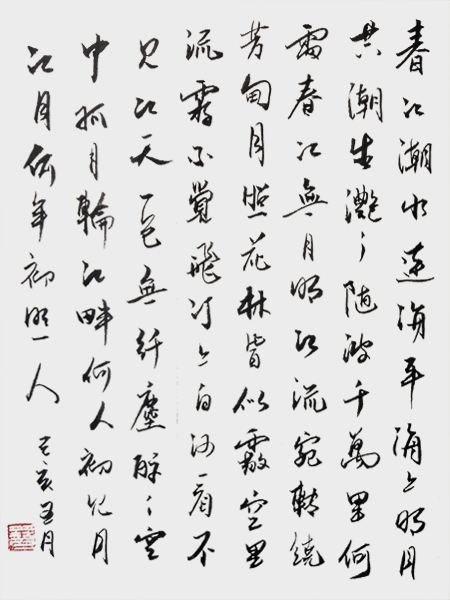 春江潮水連海平海上明月
共潮生灧〻随波千萬里何
處春江無月明江流宛轉繞
芳甸月照花林皆似霰空里
流霜不覺飛汀上白沙看不
見江天一色無纤塵皎〻空
中孤月輪江畔何人初見月
江月何年初照人
己亥五月